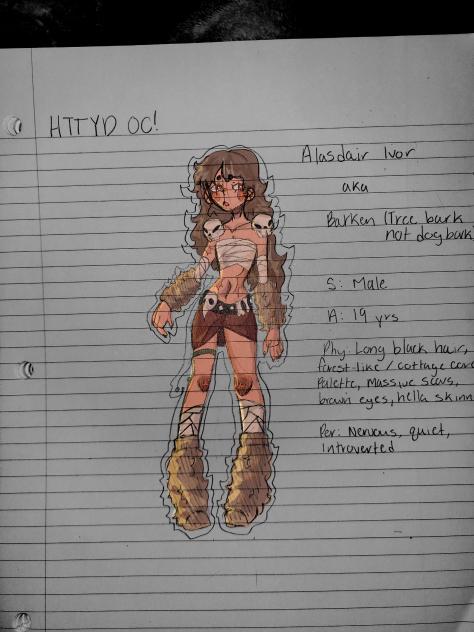 HTTYD OC!
Alasdair Ivor
aka
Barken (Tree bark
not dog bark
S: Male
A: 19 yrs
Phy: Long black hair,
forest-like / cottage core
Palette, massive scars,
brown eyes, hella skinn
Per: Nervous, quiet,
introverted